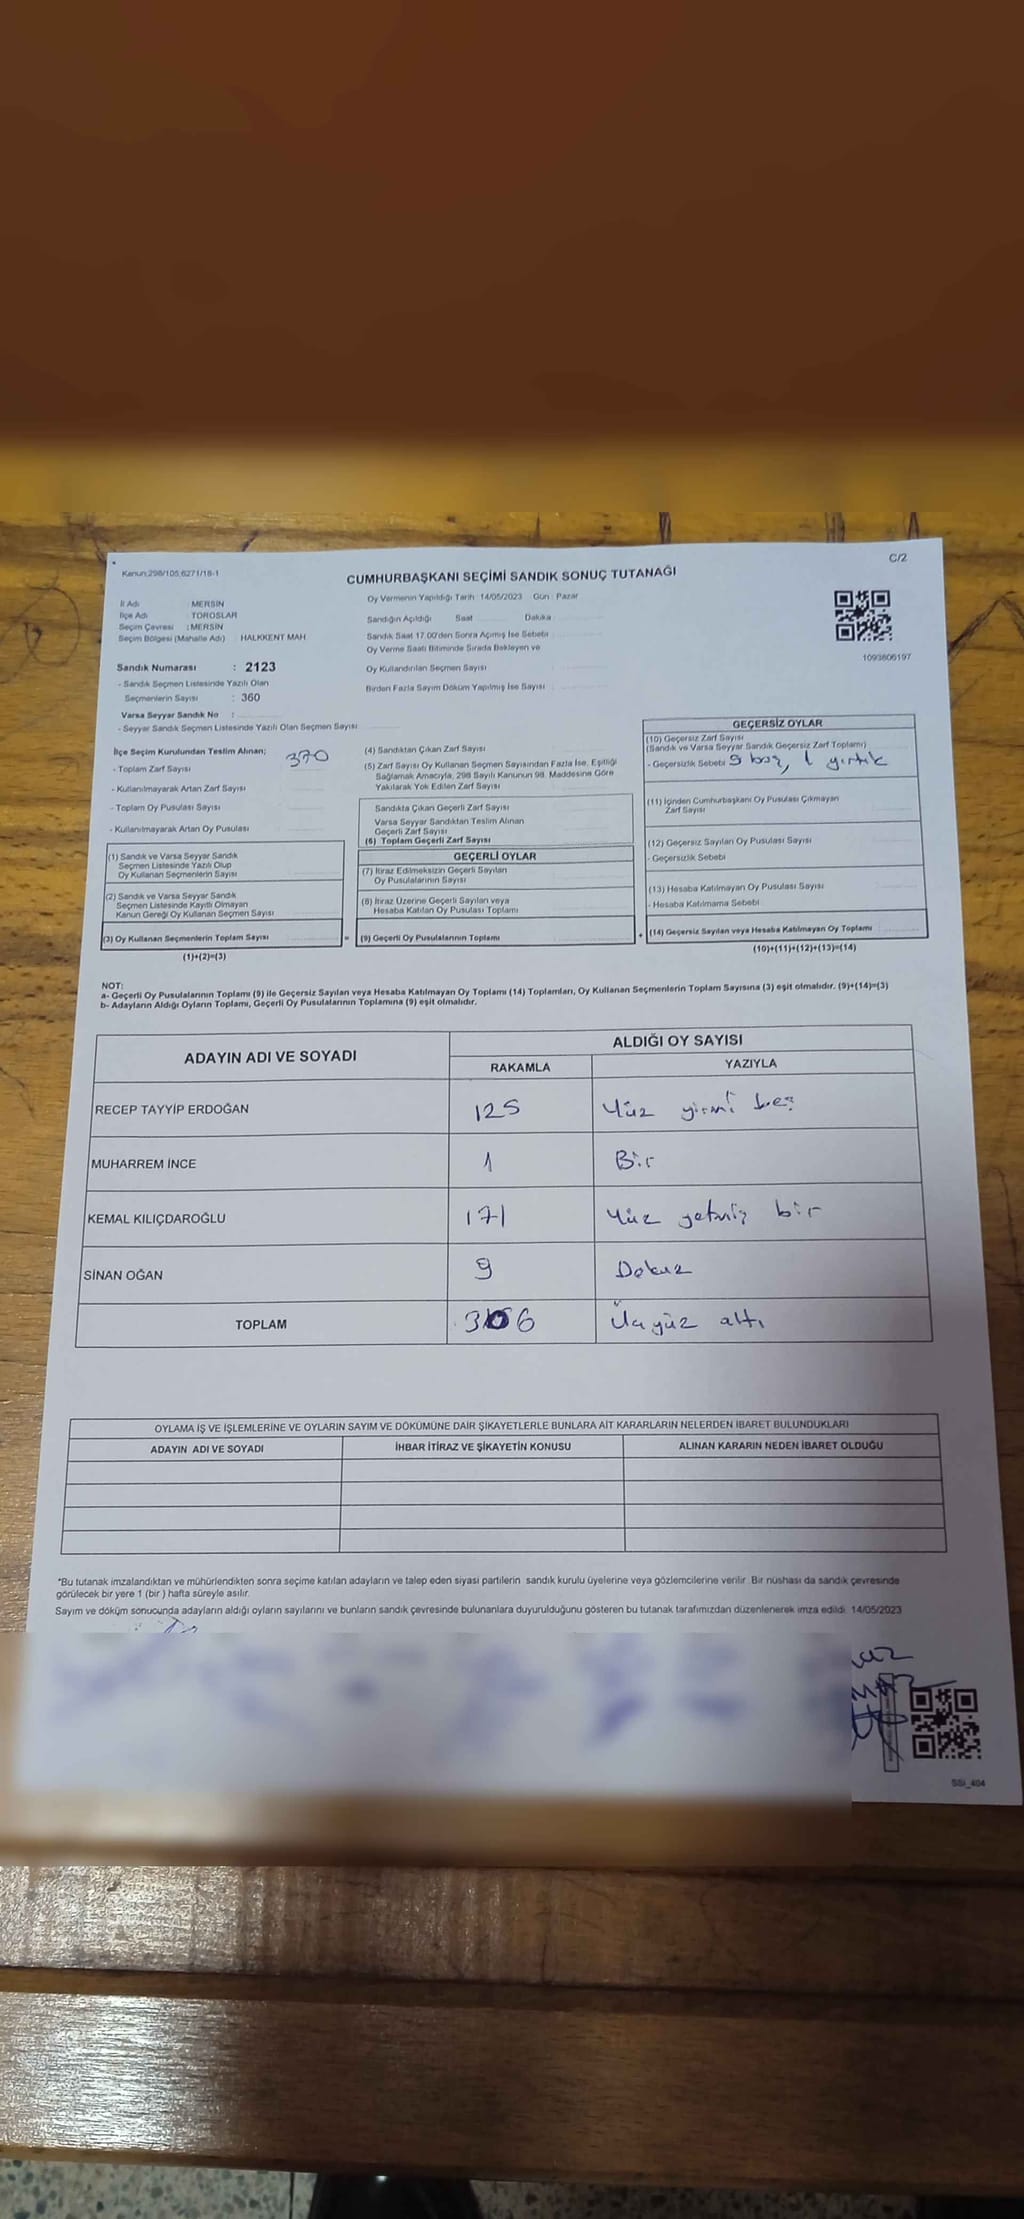 C/2
Kanun:298/105,6271/18-1
CUMHURBAŞKANI SEÇİMİ SANDIK SONUÇ TUTANAĞI
İl Adı : MERSİN
İlçe Adı : TOROSLAR
Seçim Çevresi : MERSİN
Seçim Bölgesi (Mahalle Adı) : HALKKENT MAH
Oy Vermenin Yapıldığı Tarih : 14/05/2023 Gün : Pazar
Sandığın Açıldığı Saat Dakika
Sandık Saat 17.00'den Sonra Açımış İse Sebebi
Oy Verme Saati Bitiminde Sırada Bekleyen ve
Oy Kullandırılan Seçmen Sayısı
Birden Fazla Sayım Döküm Yapılmış İse Sayısı
1093606197
Sandık Numarası : 2123
- Sandık Seçmen Listesinde Yazılı Olan
Seçmenlerin Sayısı : 360
Varsa Seyyar Sandık No :
- Seyyar Sandık Seçmen Listesinde Yazılı Olan Seçmen Sayısı
İlçe Seçim Kurulundan Teslim Alınan;
- Toplam Zarf Sayısı 370
- Kullanılmayarak Artan Zarf Sayısı
- Toplam Oy Pusulası Sayısı
- Kullanılmayarak Artan Oy Pusulası
(1) Sandık ve Varsa Seyyar Sandık
Seçmen Listesinde Yazılı Olup
Oy Kullanan Seçmenlerin Sayısı
(2) Sandık ve Varsa Seyyar Sandık
Seçmen Listesinde Kayıtlı Olmayan
Kanun Gereği Oy Kullanan Seçmen Sayısı
(3) Oy Kullanan Seçmenlerin Toplam Sayısı
(1)+(2)=(3)
(4) Sandıktan Çıkan Zarf Sayısı
(5) Zarf Sayısı Oy Kullanan Seçmen Sayısından Fazla İse, Eşitliği
Sağlamak Amacıyla, 298 Sayılı Kanunun 98. Maddesine Göre
Yakılarak Yok Edilen Zarf Sayısı
Sandıkta Çıkan Geçerli Zarf Sayısı
Varsa Seyyar Sandıktan Teslim Alınan
Geçerli Zarf Sayısı
(6) Toplam Geçerli Zarf Sayısı
GEÇERLİ OYLAR
(7) İtiraz Edilmeksizin Geçerli Sayılan
Oy Pusulalarının Sayısı
(8) İtiraz Üzerine Geçerli Sayılan veya
Hesaba Katılan Oy Pusulası Toplamı
= (9) Geçerli Oy Pusulalarının Toplamı
GEÇERSİZ OYLAR
(10) Geçersiz Zarf Sayısı
(Sandık ve Varsa Seyyar Sandık Geçersiz Zarf Toplamı)
- Geçersizlik Sebebi 9 boş, 1 yırtık
(11) İçinden Cumhurbaşkanı Oy Pusulası Çıkmayan
Zarf Sayısı
(12) Geçersiz Sayılan Oy Pusulası Sayısı
- Geçersizlik Sebebi
(13) Hesaba Katılmayan Oy Pusulası Sayısı
- Hesaba Katılmama Sebebi
+ (14) Geçersiz Sayılan veya Hesaba Katılmayan Oy Toplamı
(10)+(11)+(12)+(13)=(14)
NOT:
a- Geçerli Oy Pusulalarının Toplamı (9) ile Geçersiz Sayılan veya Hesaba Katılmayan Oy Toplamı (14) Toplamları, Oy Kullanan Seçmenlerin Toplam Sayısına (3) eşit olmalıdır. (9)+(14)=(3)
b- Adayların Aldığı Oyların Toplamı, Geçerli Oy Pusulalarının Toplamına (9) eşit olmalıdır.
ADAYIN ADI VE SOYADI
ALDIĞI OY SAYISI
RAKAMLA YAZIYLA
RECEP TAYYİP ERDOĞAN 125 Yüz yirmi beş
MUHARREM İNCE 1 Bir
KEMAL KILIÇDAROĞLU 171 Yüz yetmiş bir
SİNAN OĞAN 9 Dokuz
TOPLAM 306 Üçyüz altı
OYLAMA İŞ VE İŞLEMLERİNE VE OYLARIN SAYIM VE DÖKÜMÜNE DAİR ŞİKAYETLERLE BUNLARA AİT KARARLARIN NELERDEN İBARET BULUNDUKLARI
ADAYIN ADI VE SOYADI İHBAR İTİRAZ VE ŞİKAYETİN KONUSU ALINAN KARARIN NEDEN İBARET OLDUĞU
*Bu tutanak imzalandıktan ve mühürlendikten sonra seçime katılan adayların ve talep eden siyasi partilerin sandık kurulu üyelerine veya gözlemcilerine verilir. Bir nüshası da sandık çevresinde
görülecek bir yere 1 (bir ) hafta süreyle asılır.
Sayım ve döküm sonucunda adayların aldığı oyların sayılarını ve bunların sandık çevresinde bulunanlara duyurulduğunu gösteren bu tutanak tarafımızdan düzenlenerek imza edildi. 14/05/2023
SSİ_404